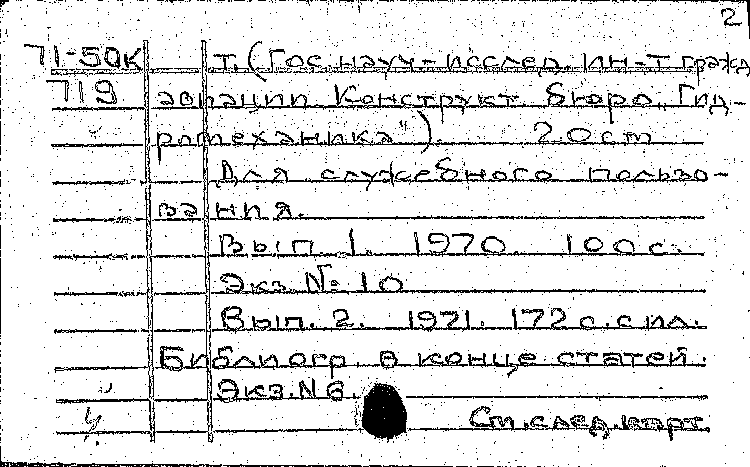 2
71-50к т. (Гос. науч-исслед. ин-т гражд
719 авиации Конструкт. бюро „Гид-
ротеханика"). 20 см
Для служебного пользо-
вания.
Вып. 1. 1970. 100 с.
Экз. № 10
Вып. 2. 1971. 172 с. с ил.
Библиогр. в конце статей.
Экз. N 6.
См. след. карт.